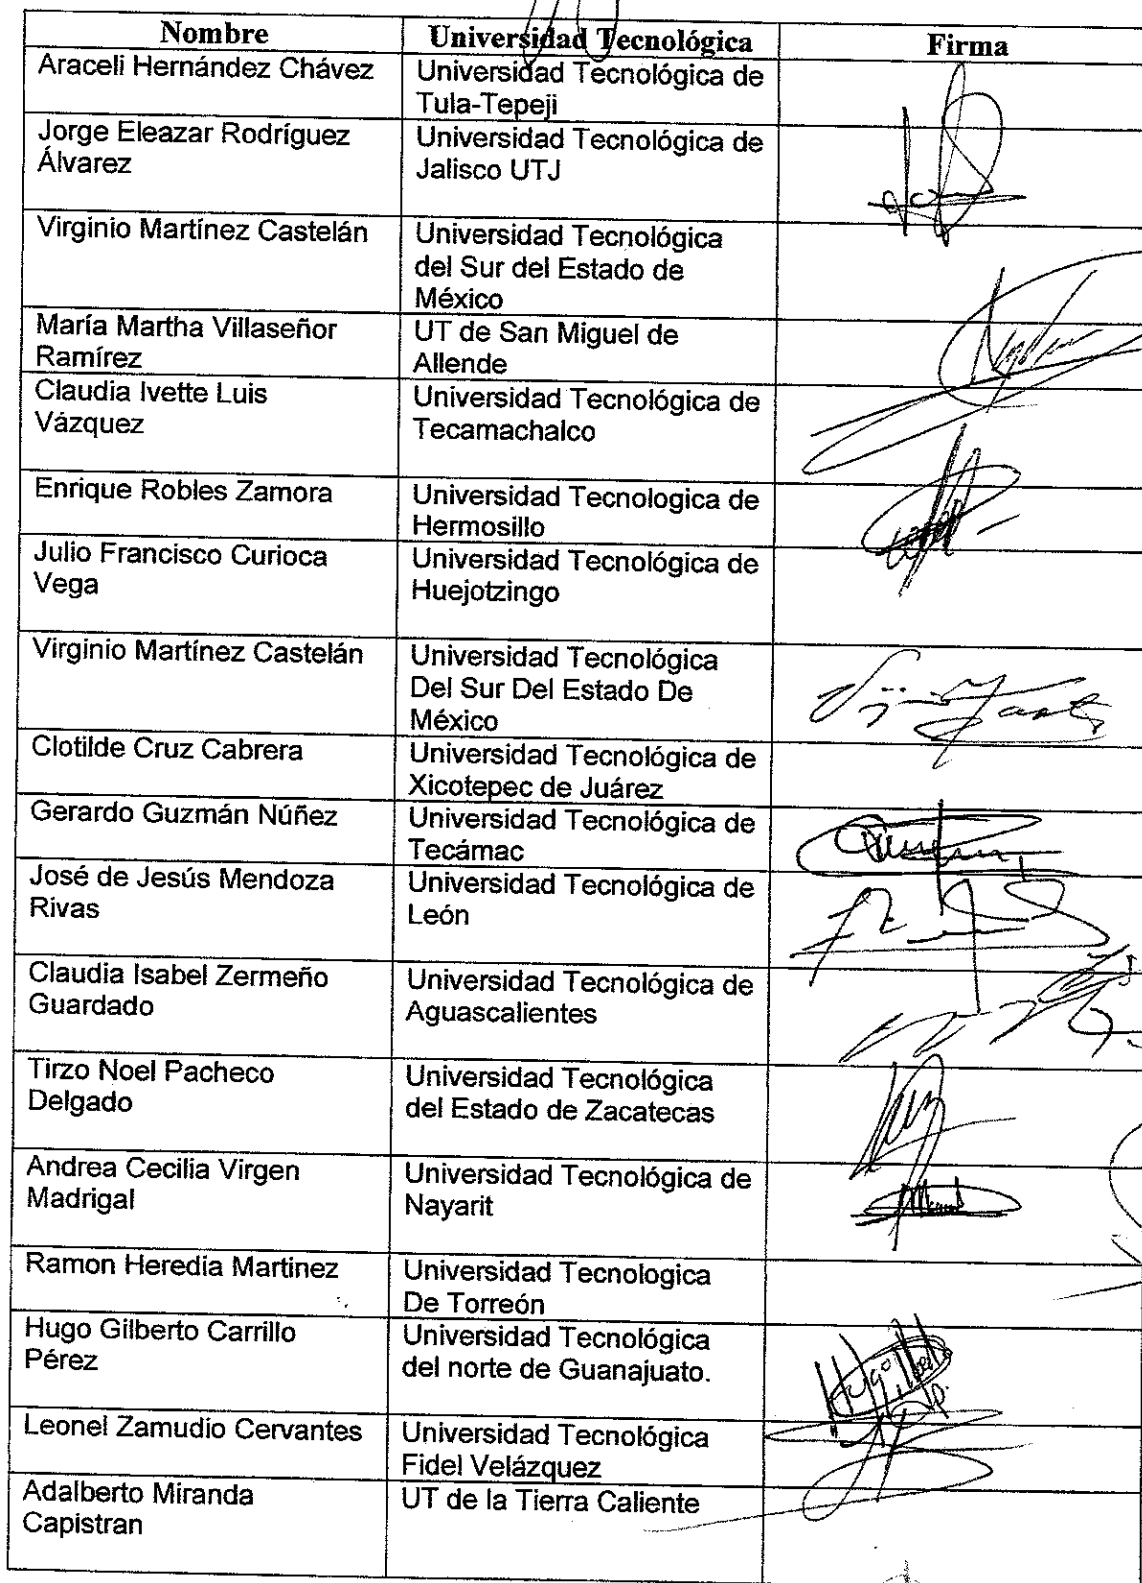 Nombre
Universidad Tecnológica
Firma
Araceli Hernández Chávez
Universidad Tecnológica de
Tula-Tepeji
Jorge Eleazar Rodríguez
Álvarez
Universidad Tecnológica de
Jalisco UTJ
Virginio Martínez Castelán
Universidad Tecnológica
del Sur del Estado de
México
María Martha Villaseñor
Ramírez
UT de San Miguel de
Allende
Claudia Ivette Luis
Vázquez
Universidad Tecnológica de
Tecamachalco
Enrique Robles Zamora
Universidad Tecnologica de
Hermosillo
Julio Francisco Curioca
Vega
Universidad Tecnológica de
Huejotzingo
Virginio Martínez Castelán
Universidad Tecnológica
Del Sur Del Estado De
México
Clotilde Cruz Cabrera
Universidad Tecnológica de
Xicotepec de Juárez
Gerardo Guzmán Núñez
Universidad Tecnológica de
Tecámac
José de Jesús Mendoza
Rivas
Universidad Tecnológica de
León
Claudia Isabel Zermeño
Guardado
Universidad Tecnológica de
Aguascalientes
Tirzo Noel Pacheco
Delgado
Universidad Tecnológica
del Estado de Zacatecas
Andrea Cecilia Virgen
Madrigal
Universidad Tecnológica de
Nayarit
Ramon Heredia Martinez
Universidad Tecnologica
De Torreón
Hugo Gilberto Carrillo
Pérez
Universidad Tecnológica
del norte de Guanajuato.
Leonel Zamudio Cervantes
Universidad Tecnológica
Fidel Velázquez
Adalberto Miranda
Capistran
UT de la Tierra Caliente